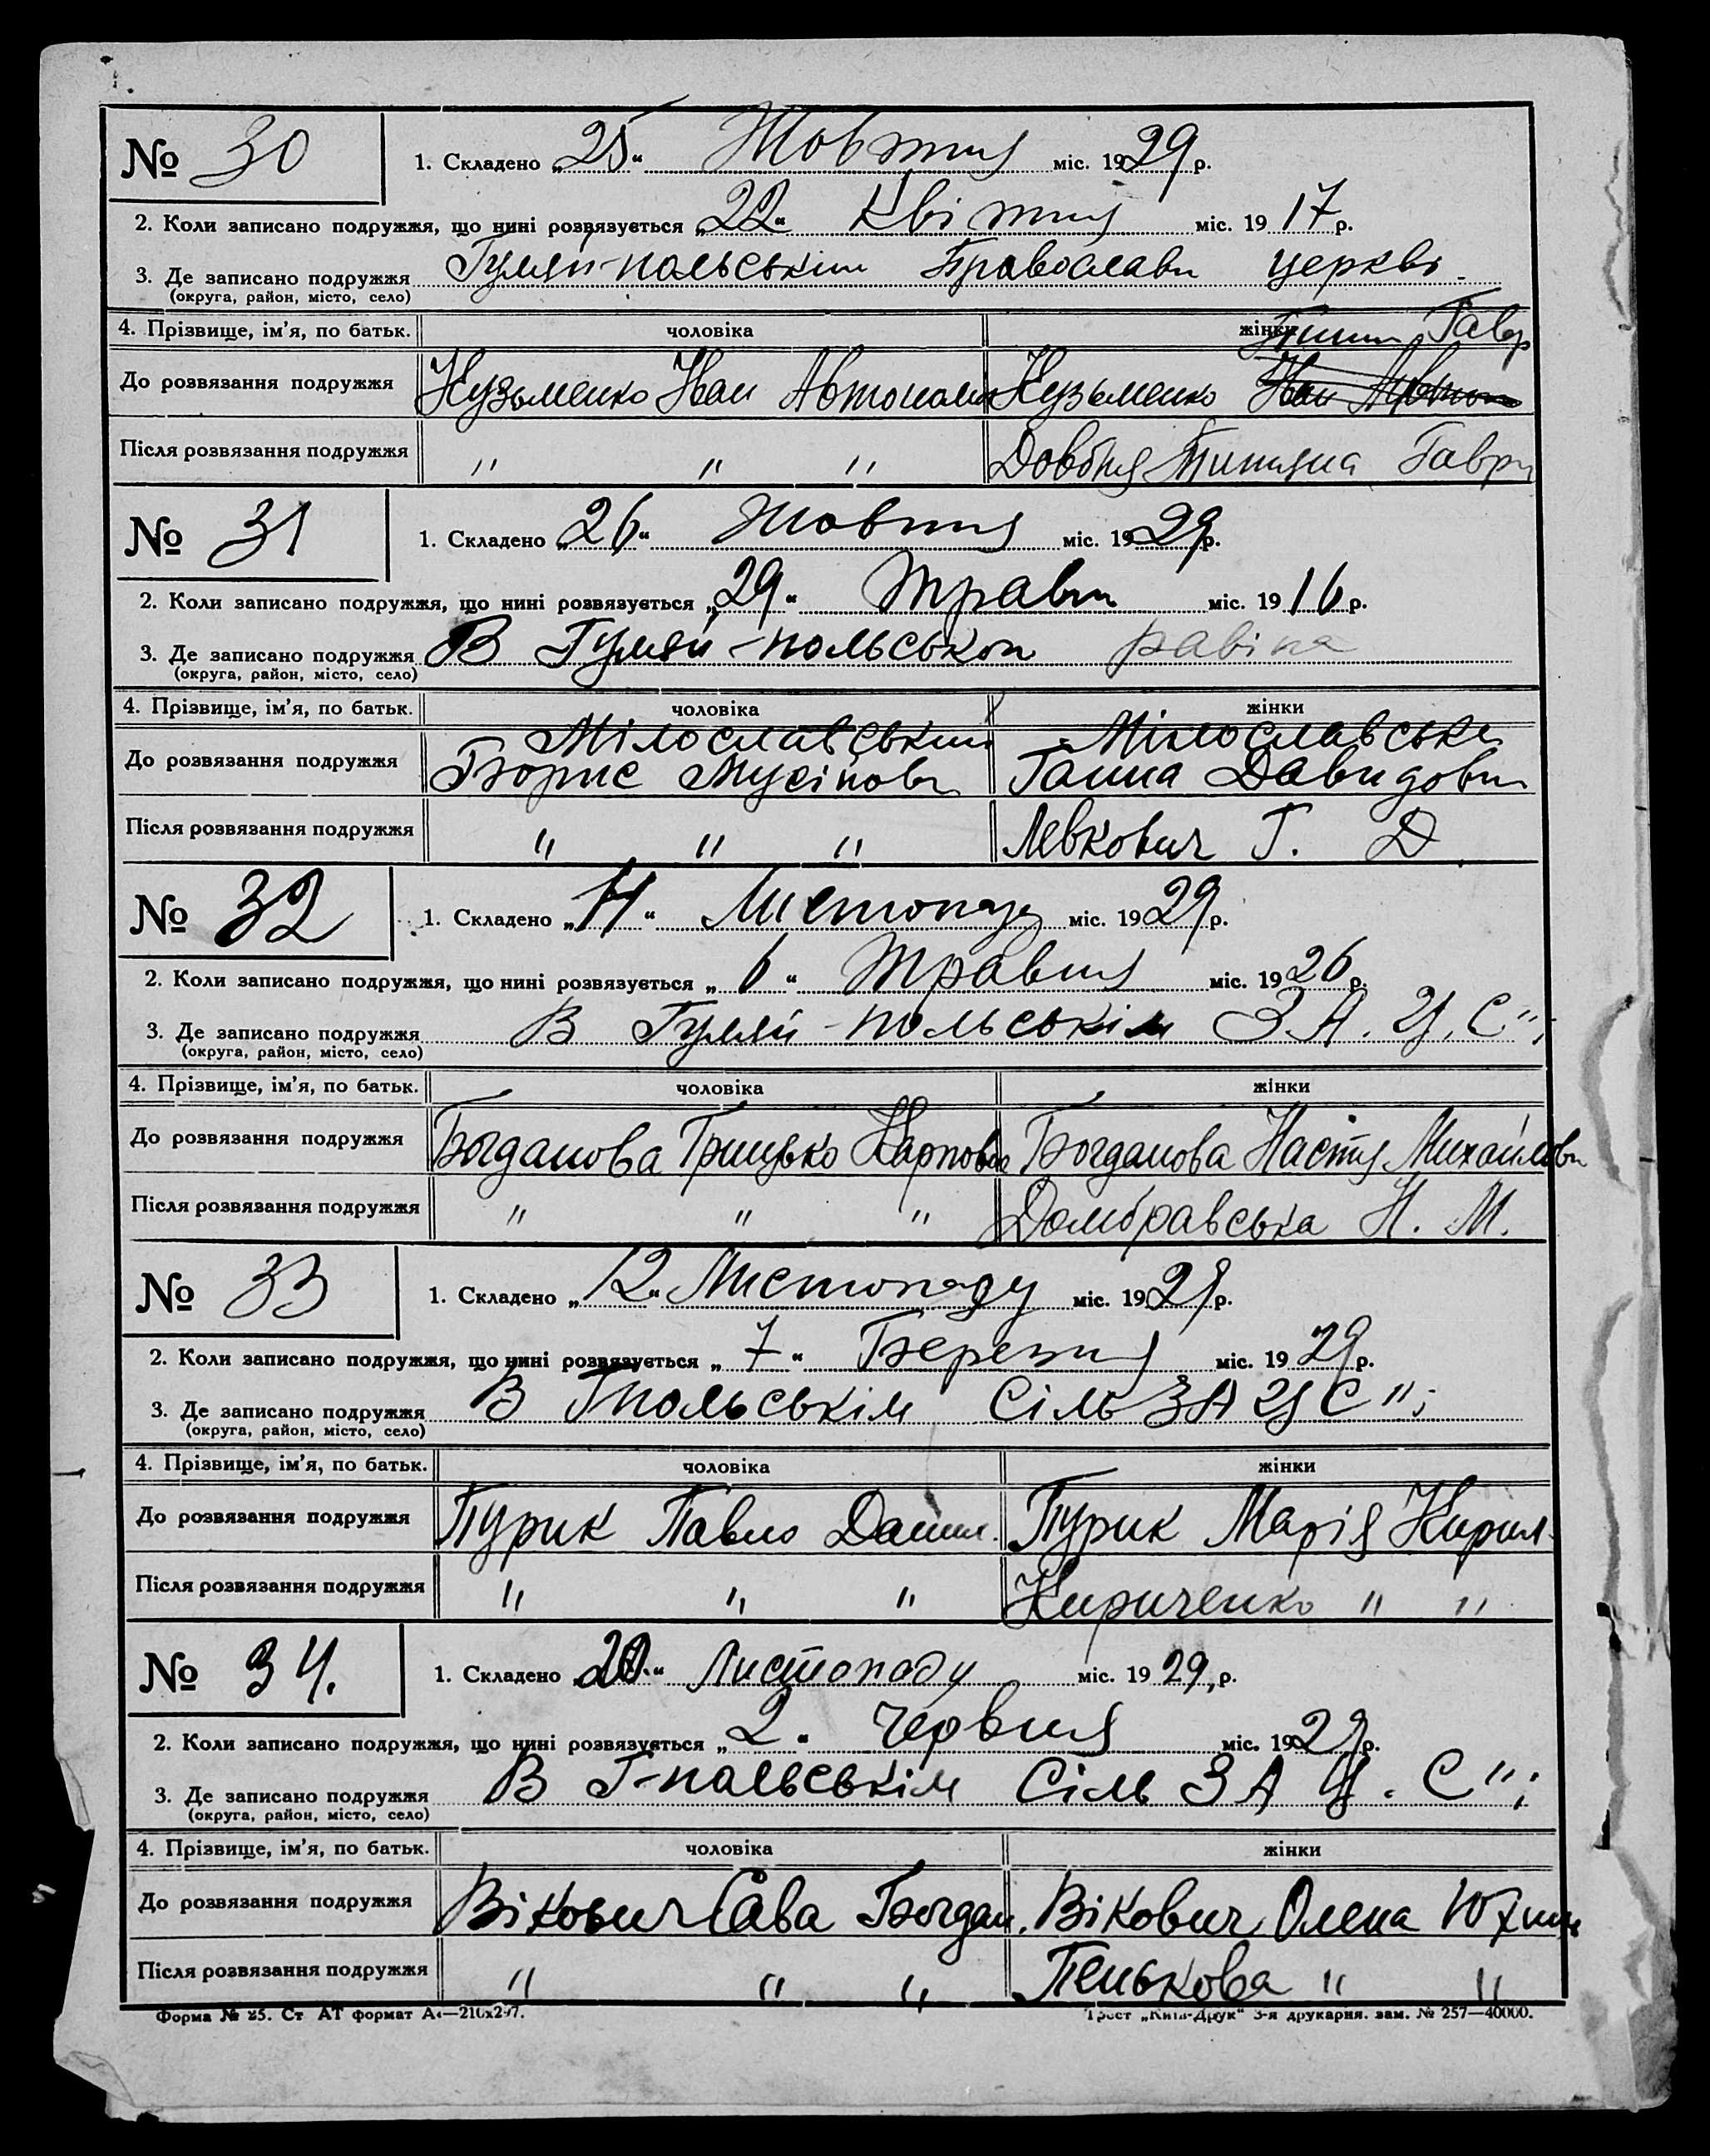 № 30
1. Складено „25“ Жовтня міс. 1929 р.
2. Коли записано подружжя, що нині розвязується „22“ Квітня міс. 1917 р.
3. Де записано подружжя Гуляй-польським Православн церкві
(округа, район, місто, село)
4. Прізвище, ім’я, по батьк. чоловіка жінки Гавр
До розвязання подружжя Кузьменко Іван Автоном Кузьменко
Після розвязання подружжя " " " Довбня Тетяна Гаври
№ 31
1. Складено „26“ Жовтня міс. 1929 р.
2. Коли записано подружжя, що нині розвязується „29“ Травн міс. 1916 р.
3. Де записано подружжя В Гуляй-польськом равіна
(округа, район, місто, село)
4. Прізвище, ім’я, по батьк. чоловіка жінки
Мілославський Мілославська
До розвязання подружжя Борис Мусіпов Ганна Давидовн
Після розвязання подружжя " " " Левкович Г. Д
№ 32
1. Складено „11“ Листопад міс. 1929 р.
2. Коли записано подружжя, що нині розвязується „6“ Травня міс. 1926 р.
3. Де записано подружжя В Гуляй-польськім З.А.Ц.С";
(округа, район, місто, село)
4. Прізвище, ім’я, по батьк. чоловіка жінки
До розвязання подружжя Богданова Грицько Карпов Богданова Настя Михайловн
Після розвязання подружжя " " " Домбравська Н. М.
№ 33
1. Складено „12“ Листопаду міс. 1929 р.
2. Коли записано подружжя, що нині розвязується „7“ Березня міс. 1929 р.
3. Де записано подружжя В Гпольськім Сіль ЗАЦС";
(округа, район, місто, село)
4. Прізвище, ім’я, по батьк. чоловіка жінки
До розвязання подружжя Пурик Павло Данил. Пурик Марія Кирил
Після розвязання подружжя " " " Кириченко " "
№ 34.
1. Складено „20“ Листопаду міс. 1929, р.
2. Коли записано подружжя, що нині розвязується „2“ Червня міс. 1929 р.
3. Де записано подружжя В Г-польськім Сіль ЗАЦ.С";
(округа, район, місто, село)
4. Прізвище, ім’я, по батьк. чоловіка жінки
До розвязання подружжя Вікович Сава Богдан. Вікович Олена Юхим
Після розвязання подружжя " " " Пенькова " "
Форма № 25. Ст АТ формат А4—210х297. Трест „Київ-Друк“ 3-я друкарня. зам. № 257—40000.